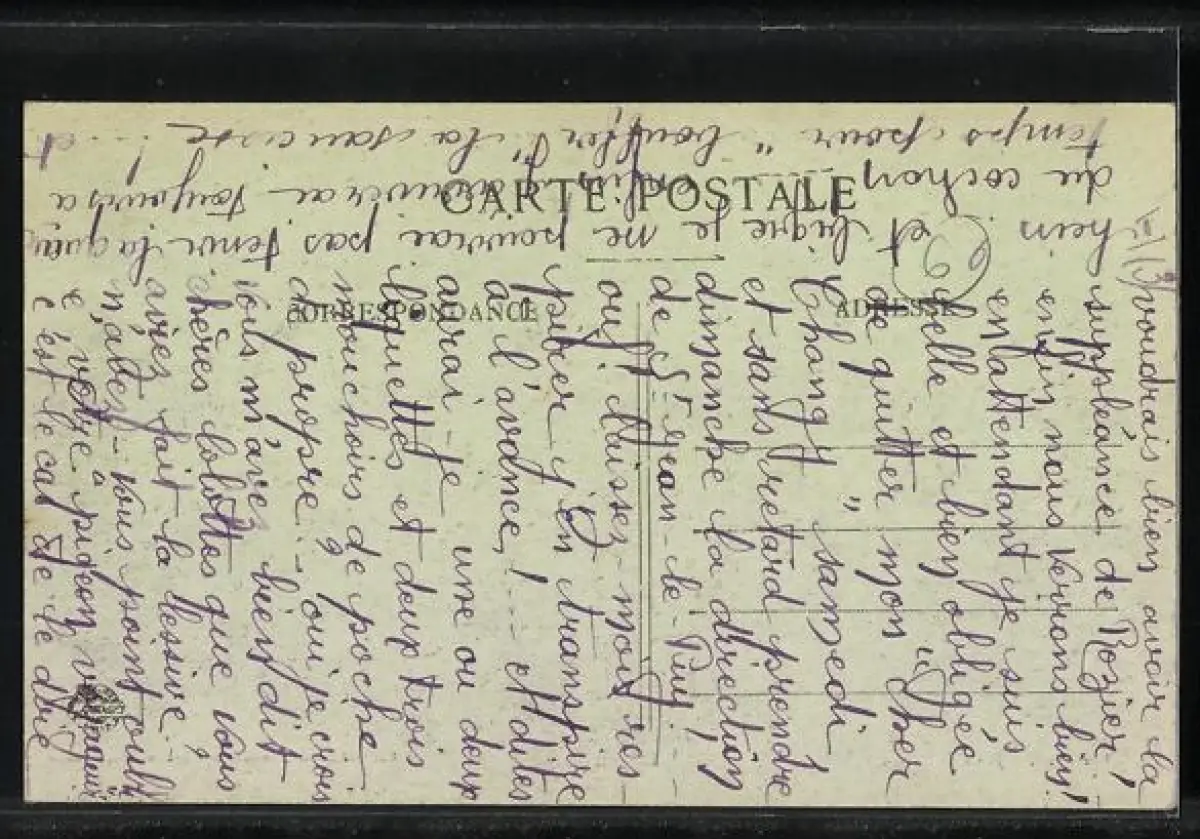 CARTE POSTALE
CORRESPONDANCE
ADRESSE
voudrais bien avoir la
suppléance de Rozier,
enfin nous verrons bien!
en attendant je suis
belle et bien obligée
de quitter mon "cher
Changt" samedi
et sans retard prendre
dimanche la direction
de St Jean-le-Puy!
ouf laissez-moi res-
pirer j'en transpire
à l'avance! --- et dites
aurai-je une ou deux
liquettes et deux trois
mouchoirs de poche
de propre? - oui je crois
vous m'avez bien dit
chères lolottes que vous
aviez fait la lessive -
n'allez-vous point oubli
e votre pigeon
c'est le cas de le dire
hein et bigre je ne pourrai pas tenir la
du cochon enfin j'arriverai toujours à
temps pour "bouffer" la saucisse! ... et